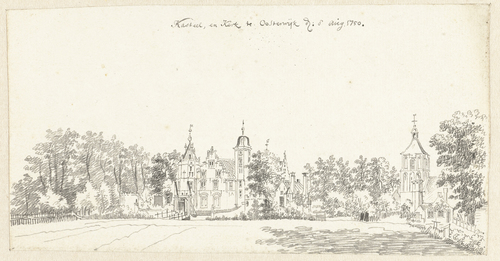 Kasteel, en Kerk te Oosterwijk D: 8 Aug 1750.